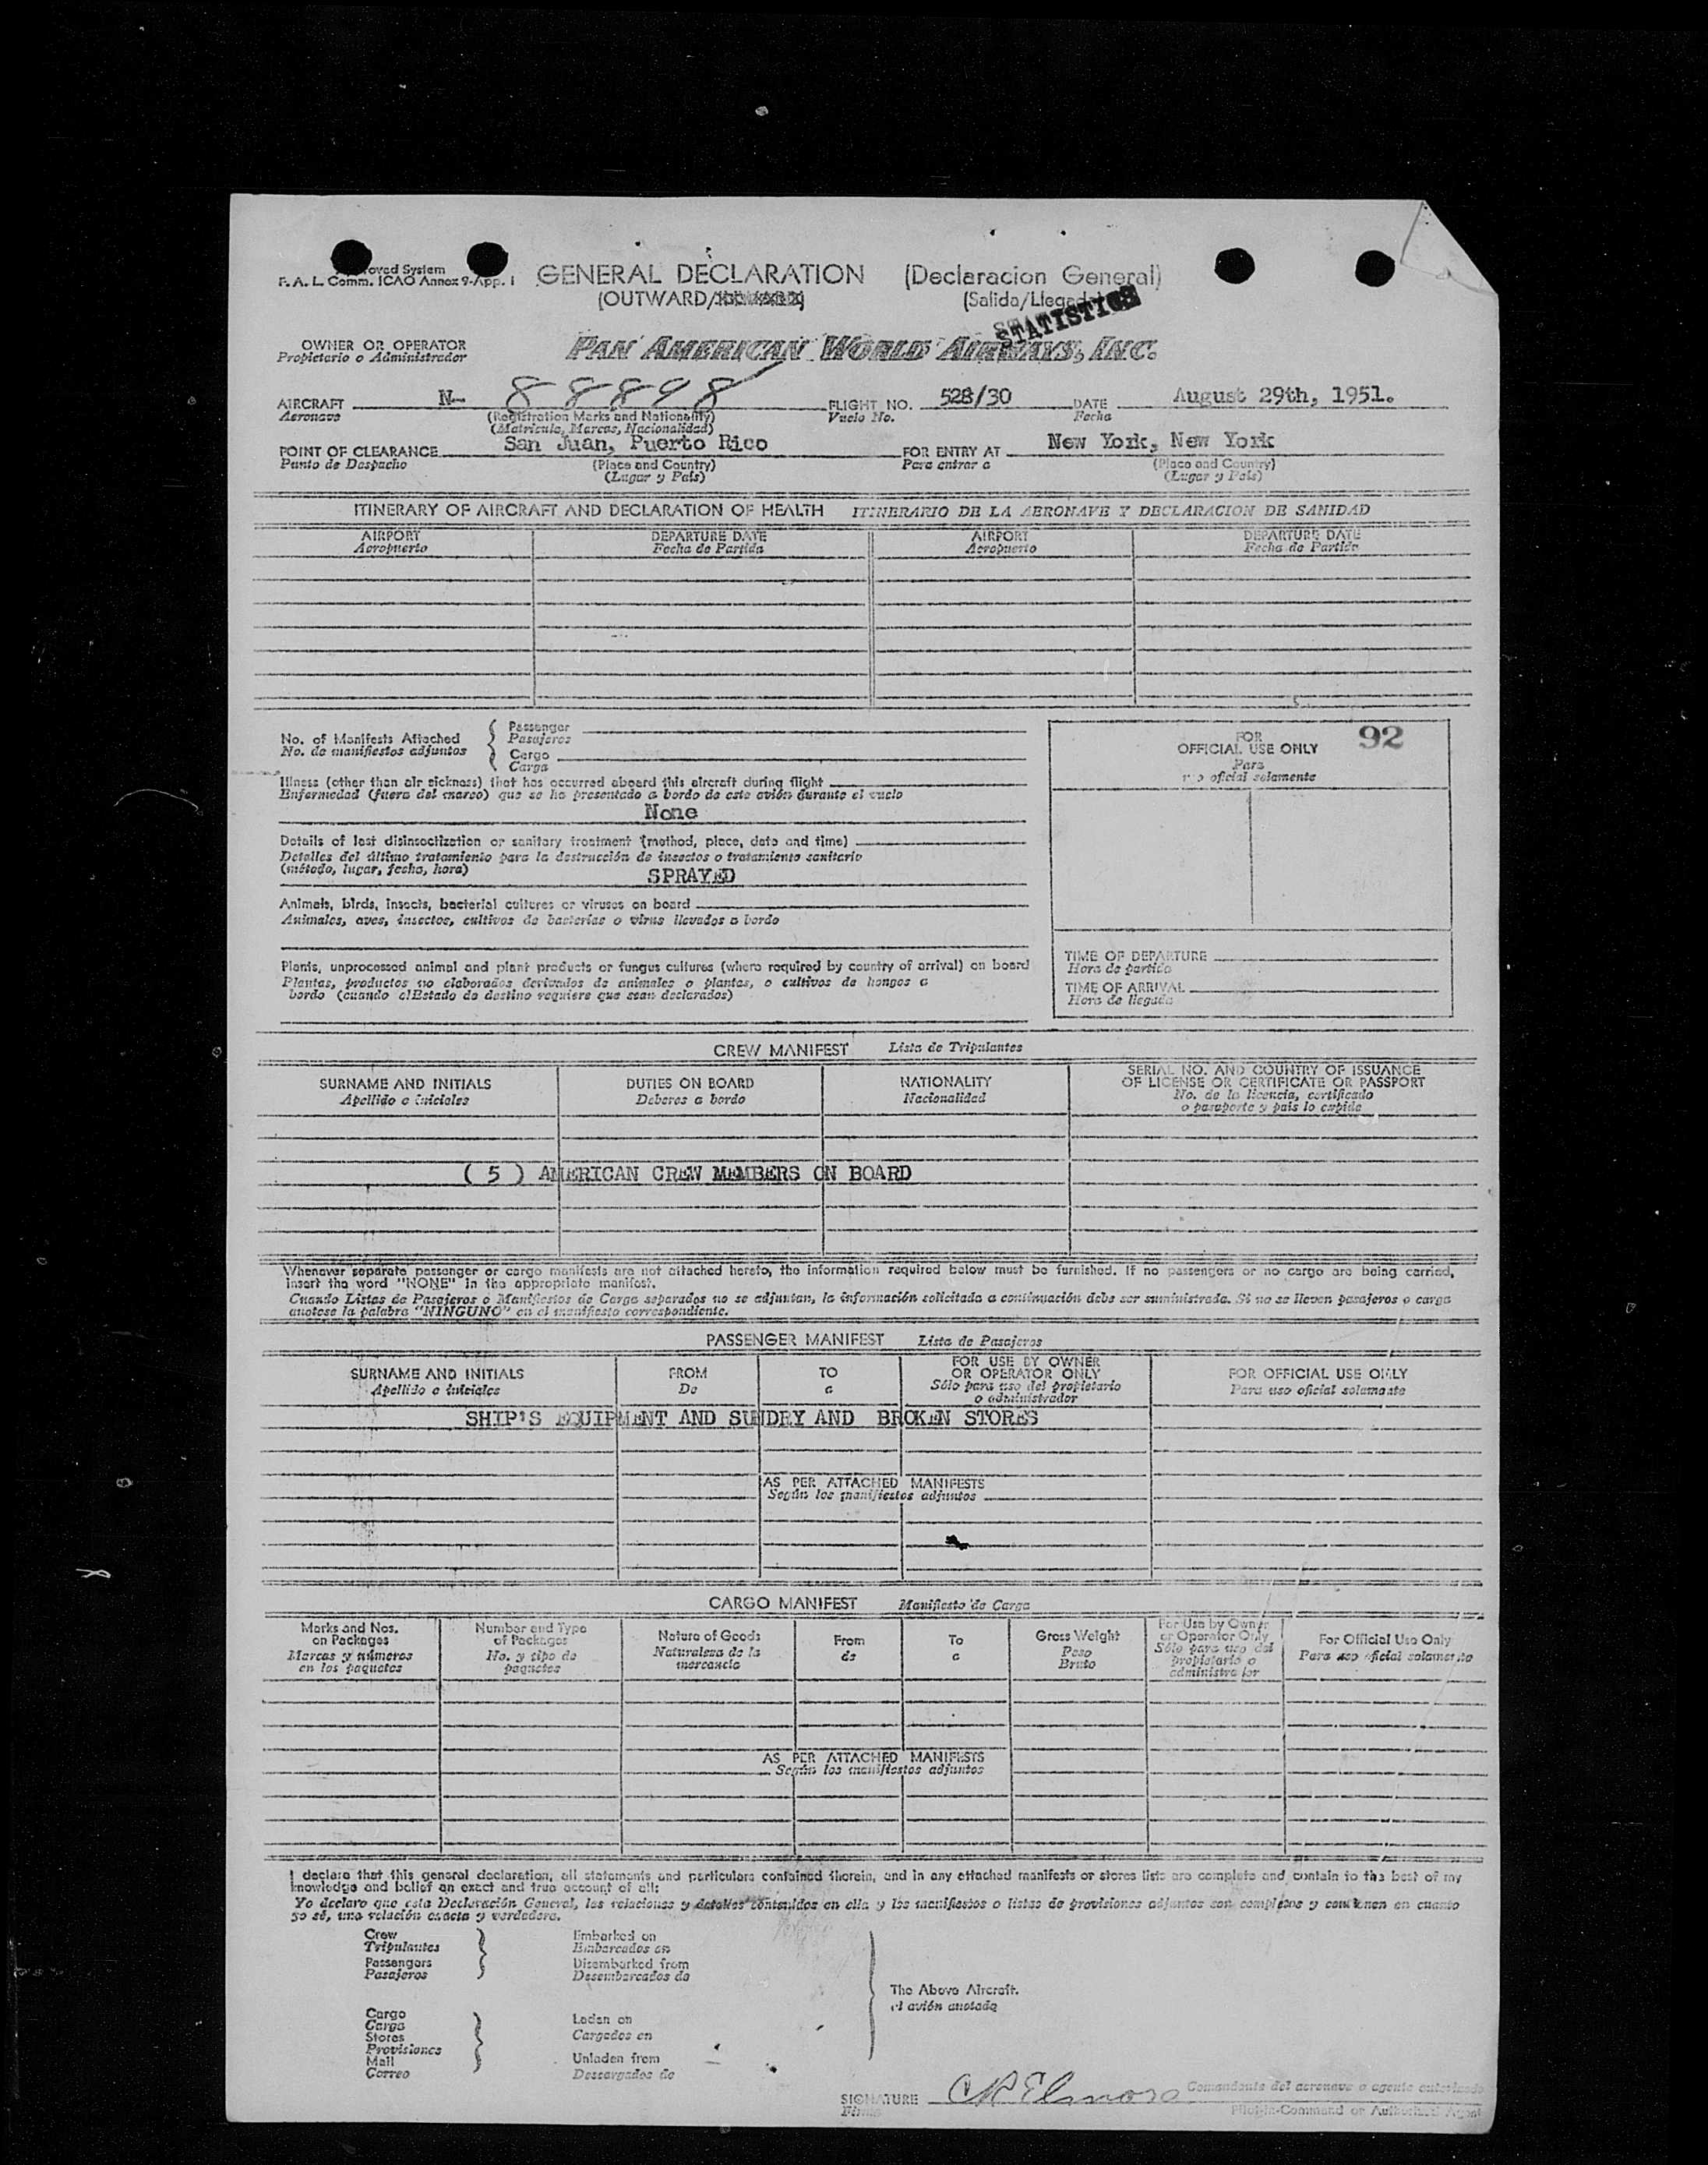 Approved System
F. A. L. Comm. ICAO Annex 9-App. 1
GENERAL DECLARATION (Declaracion General)
(OUTWARD/INWARD) (Salida/Llegada)
STATISTICS
OWNER OR OPERATOR
Propietario o Administrador
PAN AMERICAN WORLD AIRWAYS, INC.
AIRCRAFT N- 88898 FLIGHT NO. 528/30 DATE August 29th, 1951.
Aeronave (Registration Marks and Nationality) Vuelo No. Fecha
(Matricula, Marcas, Nacionalidad)
POINT OF CLEARANCE San Juan, Puerto Rico FOR ENTRY AT New York, New York
Punto de Despacho (Place and Country) Para entrar a (Place and Country)
(Lugar y País) (Lugar y País)
ITINERARY OF AIRCRAFT AND DECLARATION OF HEALTH ITINERARIO DE LA AERONAVE Y DECLARACION DE SANIDAD
AIRPORT DEPARTURE DATE AIRPORT DEPARTURE DATE
Aeropuerto Fecha de Partida Aeropuerto Fecha de Partida
No. of Manifests Attached
No. de manifiestos adjuntos
Passenger
Pasajeros
Cargo
Carga
FOR
OFFICIAL USE ONLY
Para
uso oficial solamente
92
Illness (other than air sickness) that has occurred aboard this aircraft during flight
Enfermedad (fuera del mareo) que se ha presentado a bordo de este avión durante el vuelo
None
Details of last disinsectization or sanitary treatment (method, place, date and time)
Detalles del último tratamiento para la destrucción de insectos o tratamiento sanitario
(método, lugar, fecha, hora)
SPRAYED
Animals, birds, insects, bacterial cultures or viruses on board
Animales, aves, insectos, cultivos de bacterias o virus llevados a bordo
Plants, unprocessed animal and plant products or fungus cultures (where required by country of arrival) on board
Plantas, productos no elaborados derivados de animales o plantas, o cultivos de hongos a
bordo (cuando el Estado de destino requiere que sean declarados)
TIME OF DEPARTURE
Hora de partida
TIME OF ARRIVAL
Hora de llegada
CREW MANIFEST Lista de Tripulantes
SURNAME AND INITIALS DUTIES ON BOARD NATIONALITY SERIAL NO. AND COUNTRY OF ISSUANCE
OF LICENSE OR CERTIFICATE OR PASSPORT
Apellido e iniciales Deberes a bordo Nacionalidad No. de la licencia, certificado
o pasaporte y pais lo expide
( 5 ) AMERICAN CREW MEMBERS ON BOARD
Whenever separate passenger or cargo manifests are not attached hereto, the information required below must be furnished. If no passengers or no cargo are being carried,
insert the word "NONE" in the appropriate manifest.
Cuando Listas de Pasajeros o Manifiestos de Carga separados no se adjuntan, la información solicitada a continuación debe ser suministrada. Si no se lleven pasajeros o carga
anotese la palabra "NINGUNO" en el manifiesto correspondiente.
PASSENGER MANIFEST Lista de Pasajeros
SURNAME AND INITIALS FROM TO FOR USE BY OWNER
OR OPERATOR ONLY FOR OFFICIAL USE ONLY
Apellido e iniciales De a Sólo para uso del propietario
o administrador Para uso oficial solamente
SHIP'S EQUIPMENT AND SUNDRY AND BROKEN STORES
AS PER ATTACHED MANIFESTS
Según los manifiestos adjuntos
CARGO MANIFEST Manifiesto de Carga
Marks and Nos.
on Packages
Marcas y números
en los paquetes
Number and Type
of Packages
No. y tipo de
paquetes
Nature of Goods
Naturaleza de la
mercancia
From
de
To
a
Gross Weight
Peso
Bruto
For Use by Owner
or Operator Only
Sólo para uso del
propietario o
administrador
For Official Use Only
Para uso oficial solamente
AS PER ATTACHED MANIFESTS
Según los manifiestos adjuntos
I declare that this general declaration, all statements and particulars contained therein, and in any attached manifests or stores lists are complete and contain to the best of my
knowledge and belief an exact and true account of all:
Yo declaro que esta Declaración General, las relaciones y detalles contenidos en ella y los manifiestos o listas de provisiones adjuntos son completos y contienen en cuanto
yo sé, una relación exacta y verdadera.
Crew
Tripulantes
Passengers
Pasajeros
Embarked on
Embarcados en
Disembarked from
Desembarcados de
The Above Aircraft.
el avión anotado
Cargo
Carga
Stores
Provisiones
Mail
Correo
Laden on
Cargados en
Unladen from
Descargados de
SIGNATURE CR Elmore
Firma
Comandante del aeronave o agente autorizado
Pilot-in-Command or Authorized Agent